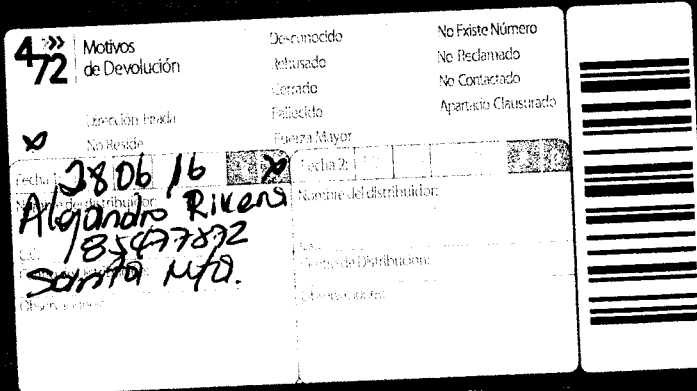 4»72 Motivos de Devolución
Dirección Errada
No Reside
Desconocido
Rehusado
Cerrado
Fallecido
Fuerza Mayor
No Existe Número
No Reclamado
No Contactado
Apartado Clausurado
Fecha 1: 28 06 16
Nombre del distribuidor:
Alejandro Rivera
C.C.
Santa Mta.
Observaciones:
Fecha 2:
Nombre del distribuidor:
C.C.
Centro de Distribución:
Observaciones: